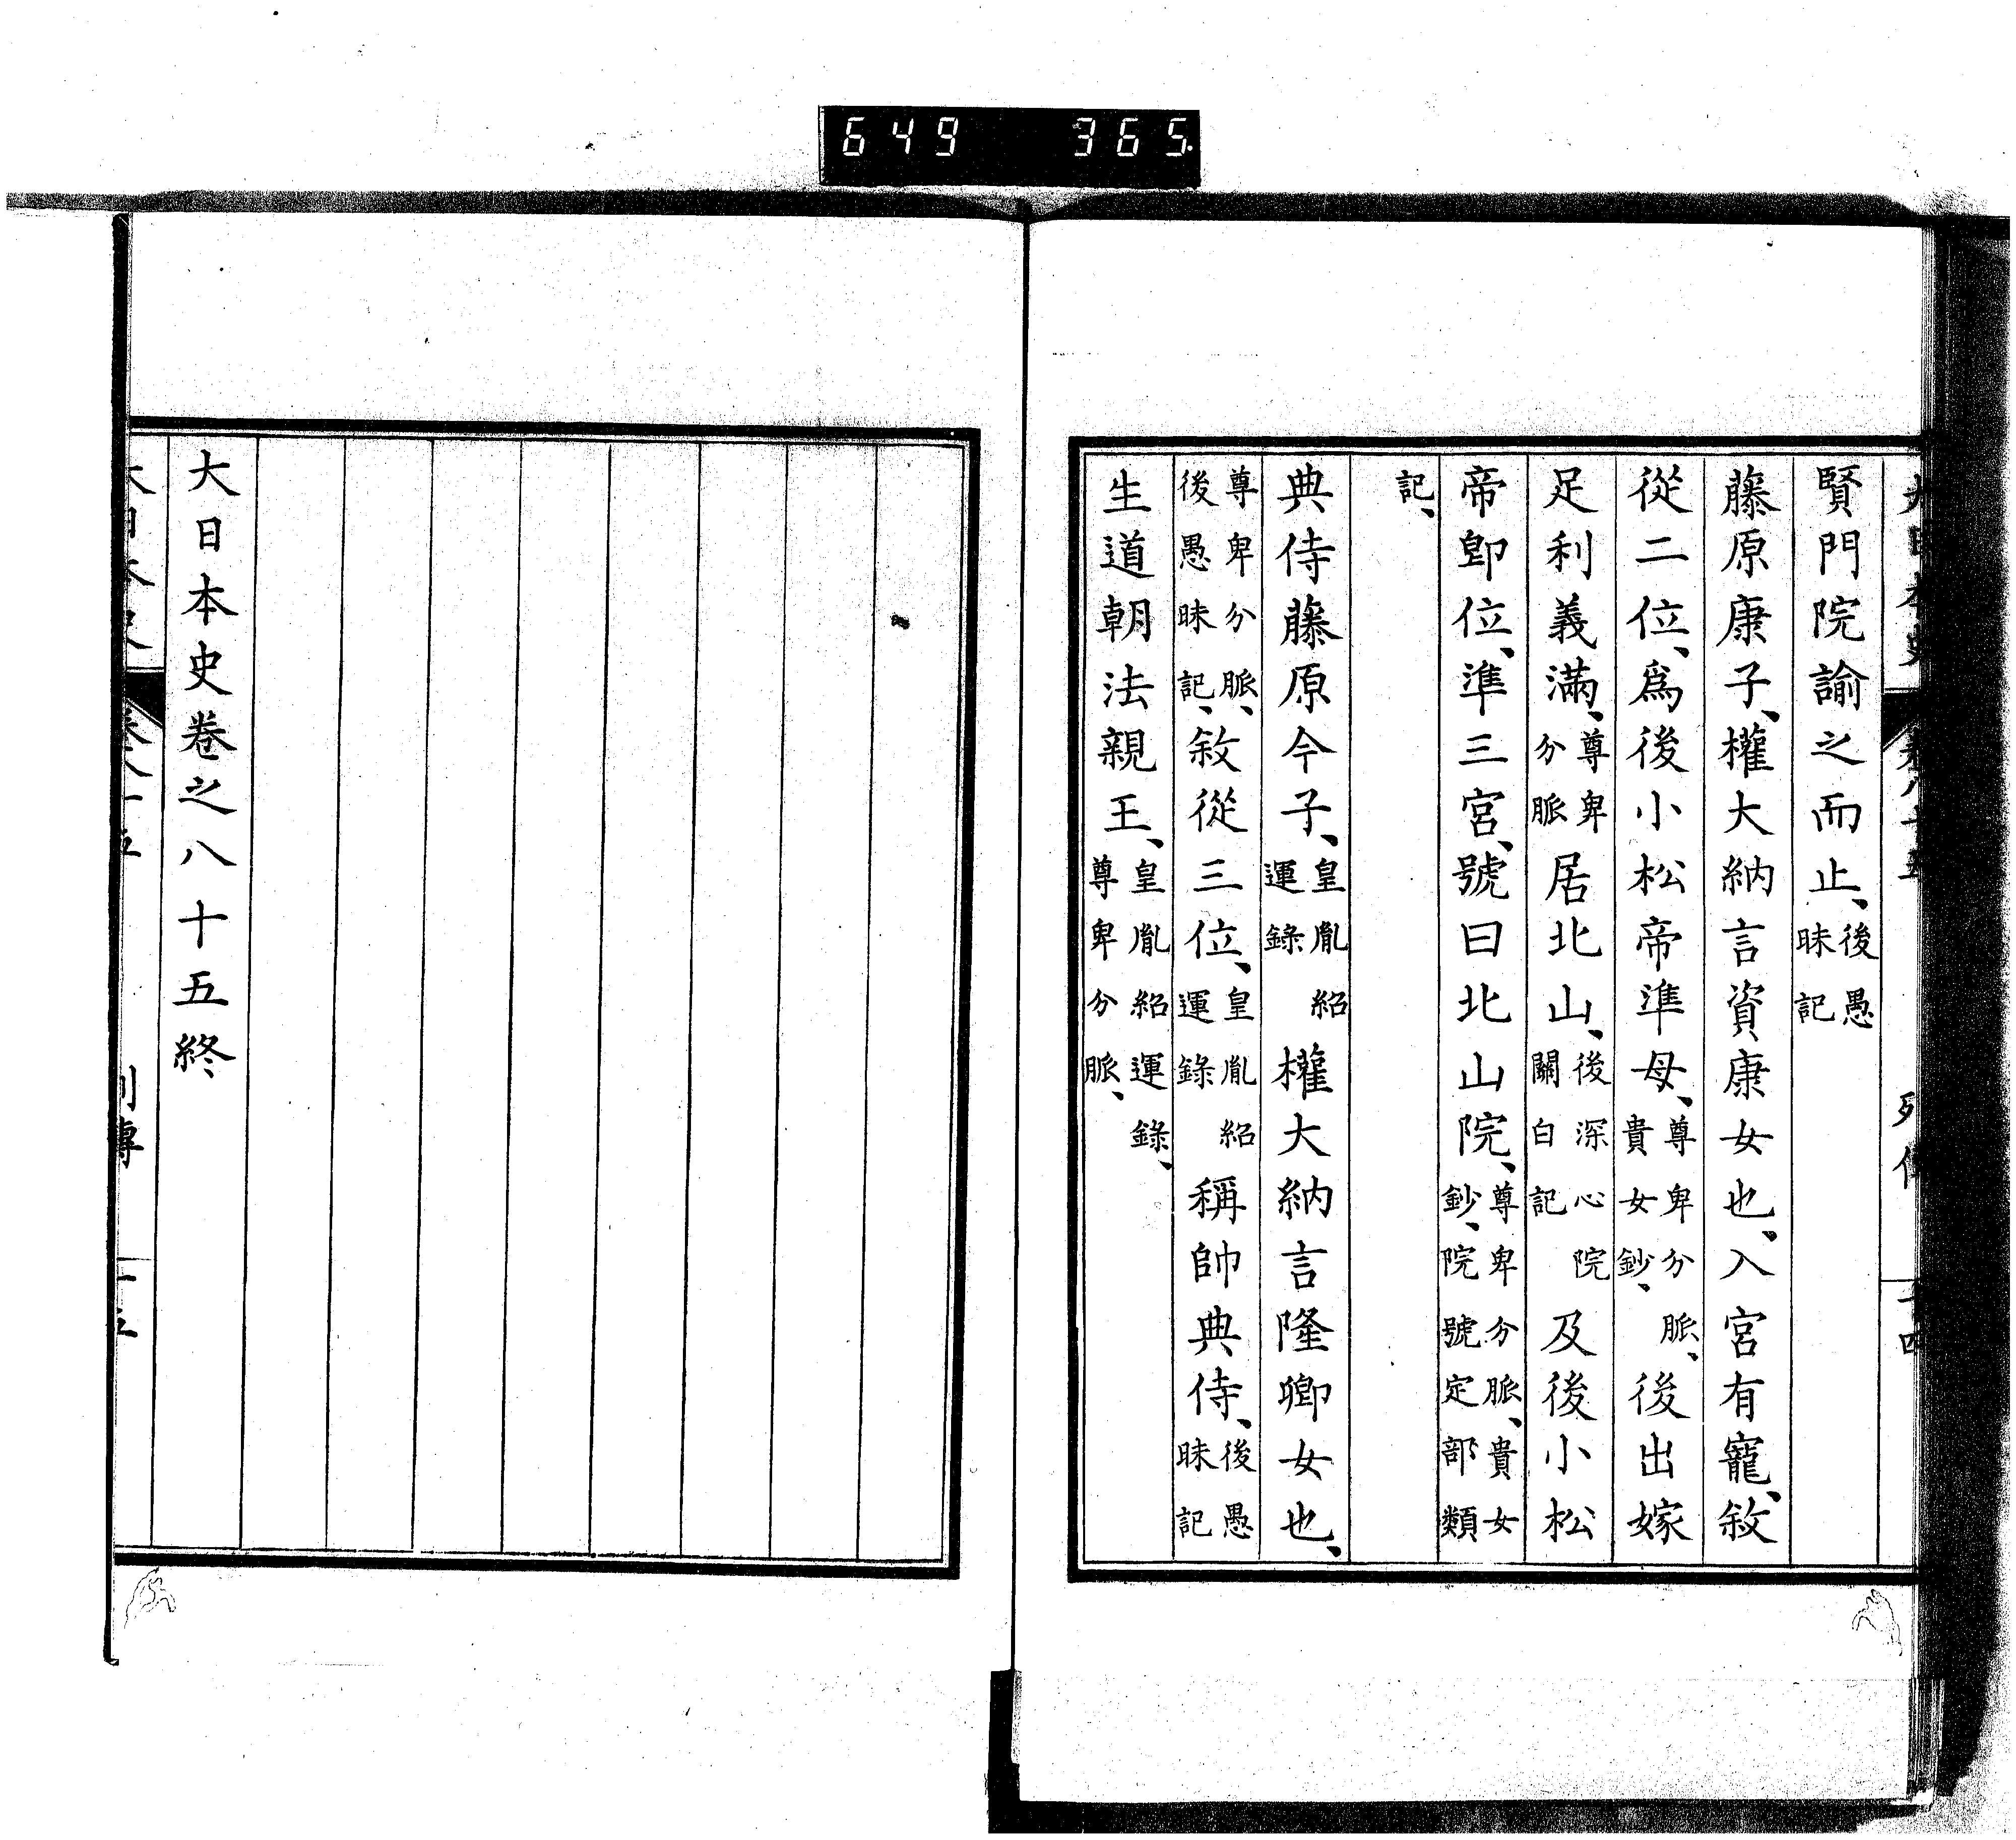 649 365
大日本史 卷八十五 列傳 十四
賢門院諭之而止、後愚昧記
藤原康子、權大納言資康女也、入宮有寵、敘
從二位、爲後小松帝準母、尊卑分脈、貴女鈔、後出嫁
足利義滿、尊卑分脈居北山、後深心院關白記及後小松
帝卽位、準三宮、號曰北山院、尊卑分脈、貴女鈔、院號定部類
記、
典侍藤原今子、皇胤紹運錄權大納言隆卿女也、
尊卑分脈、後愚昧記、敘從三位、皇胤紹運錄稱帥典侍、後愚昧記
生道朝法親王、皇胤紹運錄、尊卑分脈、
大日本史卷之八十五終
大日本史 卷八十五 列傳 十五